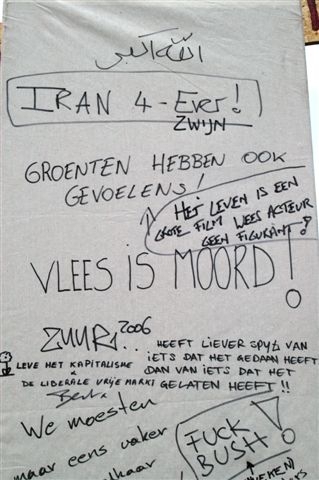 الله أكبر
IRAN 4-Ever!
ZWIJN
GROENTEN HEBBEN OOK
GEVOELENS!
HET LEVEN IS EEN
GROTE FILM WEES ACTEUR
GEEN FIGURANT!
VLEES IS MOORD!
ZUUR 2006
HEEFT LIEVER SPYT VAN
IETS DAT HET GEDAAN HEEFT
DAN VAN IETS DAT HET
GELATEN HEEFT!!
LEVE HET KAPITALISME
DE LIBERALE VRIJE MARKT
We moesten
maar eens vaker
FUCK
BUSH!